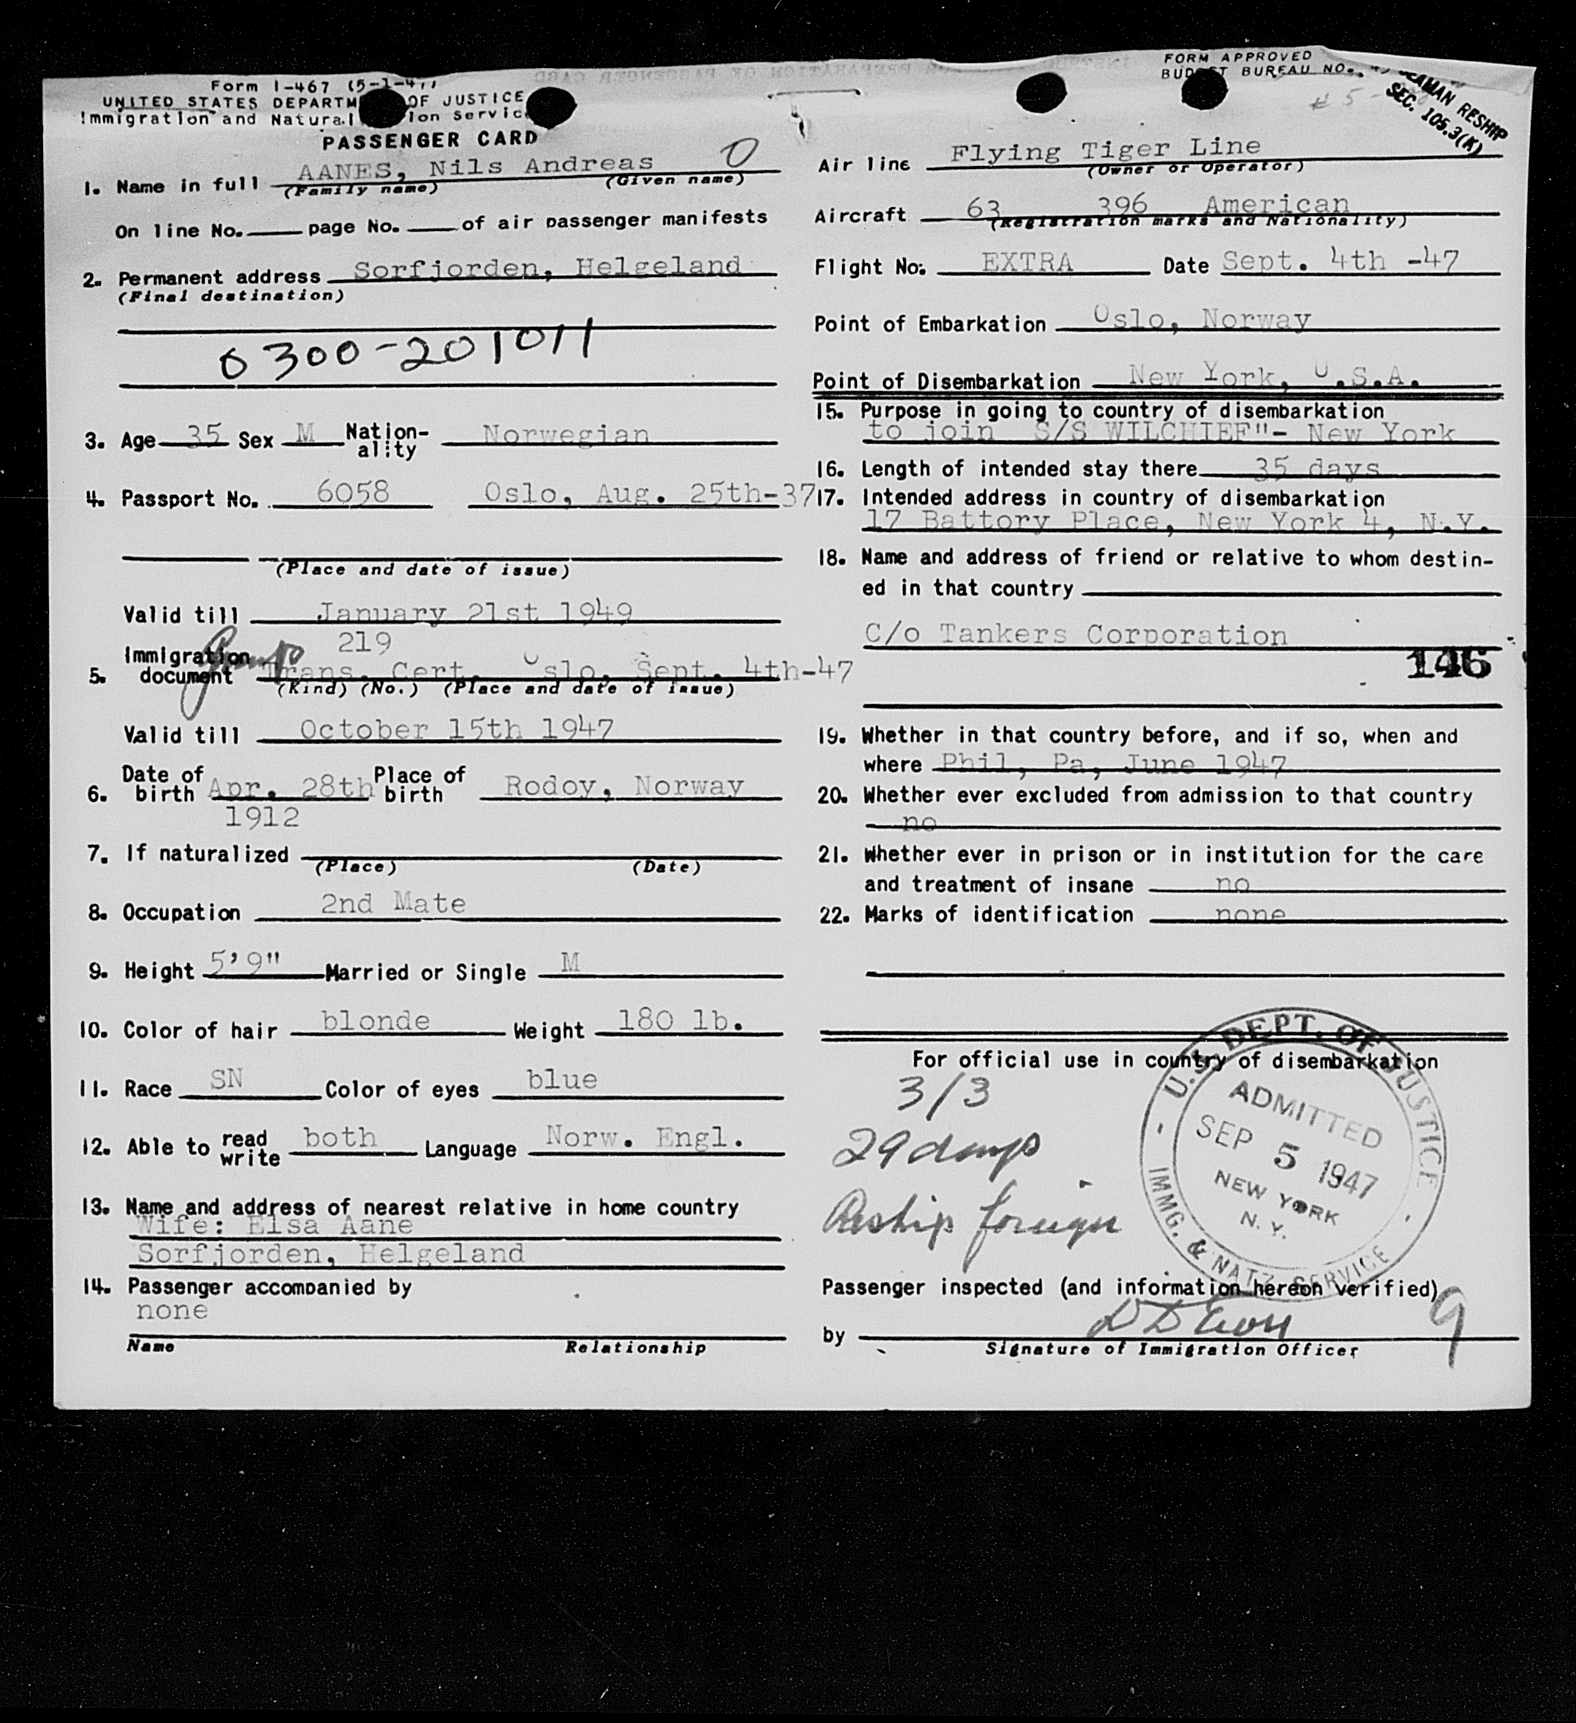 Form I-467 (5-1-47)
UNITED STATES DEPARTM OF JUSTICE
Immigration and Natural ion Servic
PASSENGER CARD
1. Name in full AANES, Nils Andreas O
(Family name) (Given name)
On line No. page No. of air passenger manifests
2. Permanent address Sorfjorden, Helgeland
(Final destination)
0300-201011
3. Age 35 Sex M Nation-ality Norwegian
4. Passport No. 6058 Oslo, Aug. 25th-37
(Place and date of issue)
Valid till January 21st 1949
219
5. Immigration document Trans. Cert. Oslo, Sept. 4th-47
(Kind) (No.) (Place and date of issue)
Valid till October 15th 1947
6. Date of birth Apr. 28th Place of birth Rodoy, Norway
1912
7. If naturalized
(Place) (Date)
8. Occupation 2nd Mate
9. Height 5'9" Married or Single M
10. Color of hair blonde Weight 180 lb.
11. Race SN Color of eyes blue
12. Able to read write both Language Norw. Engl.
13. Name and address of nearest relative in home country
Wife: Elsa Aane
Sorfjorden, Helgeland
14. Passenger accompanied by
none
Name Relationship
FORM APPROVED
BUDGET BUREAU NO.
SEAMAN RESHIP
SEC. 105.3(K)
Air line Flying Tiger Line
(Owner or Operator)
Aircraft 63 396 American
(Registration marks and Nationality)
Flight No. EXTRA Date Sept. 4th -47
Point of Embarkation Oslo, Norway
Point of Disembarkation New York, U.S.A.
15. Purpose in going to country of disembarkation
to join S/S WILCHIEF"- New York
16. Length of intended stay there 35 days
17. Intended address in country of disembarkation
17 Battory Place, New York 4, N.Y.
18. Name and address of friend or relative to whom destin-
ed in that country
C/o Tankers Corporation
146
19. Whether in that country before, and if so, when and
where Phil, Pa, June 1947
20. Whether ever excluded from admission to that country
no
21. Whether ever in prison or in institution for the care
and treatment of insane no
22. Marks of identification none
For official use in country of disembarkation
3/3
29 days
Reship foreign
U.S. DEPT. OF JUSTICE
ADMITTED
SEP 5 1947
NEW YORK
N.Y.
IMMG. & NATZ. SERVICE
Passenger inspected (and information hereon verified)
9
by
Signature of Immigration Officer